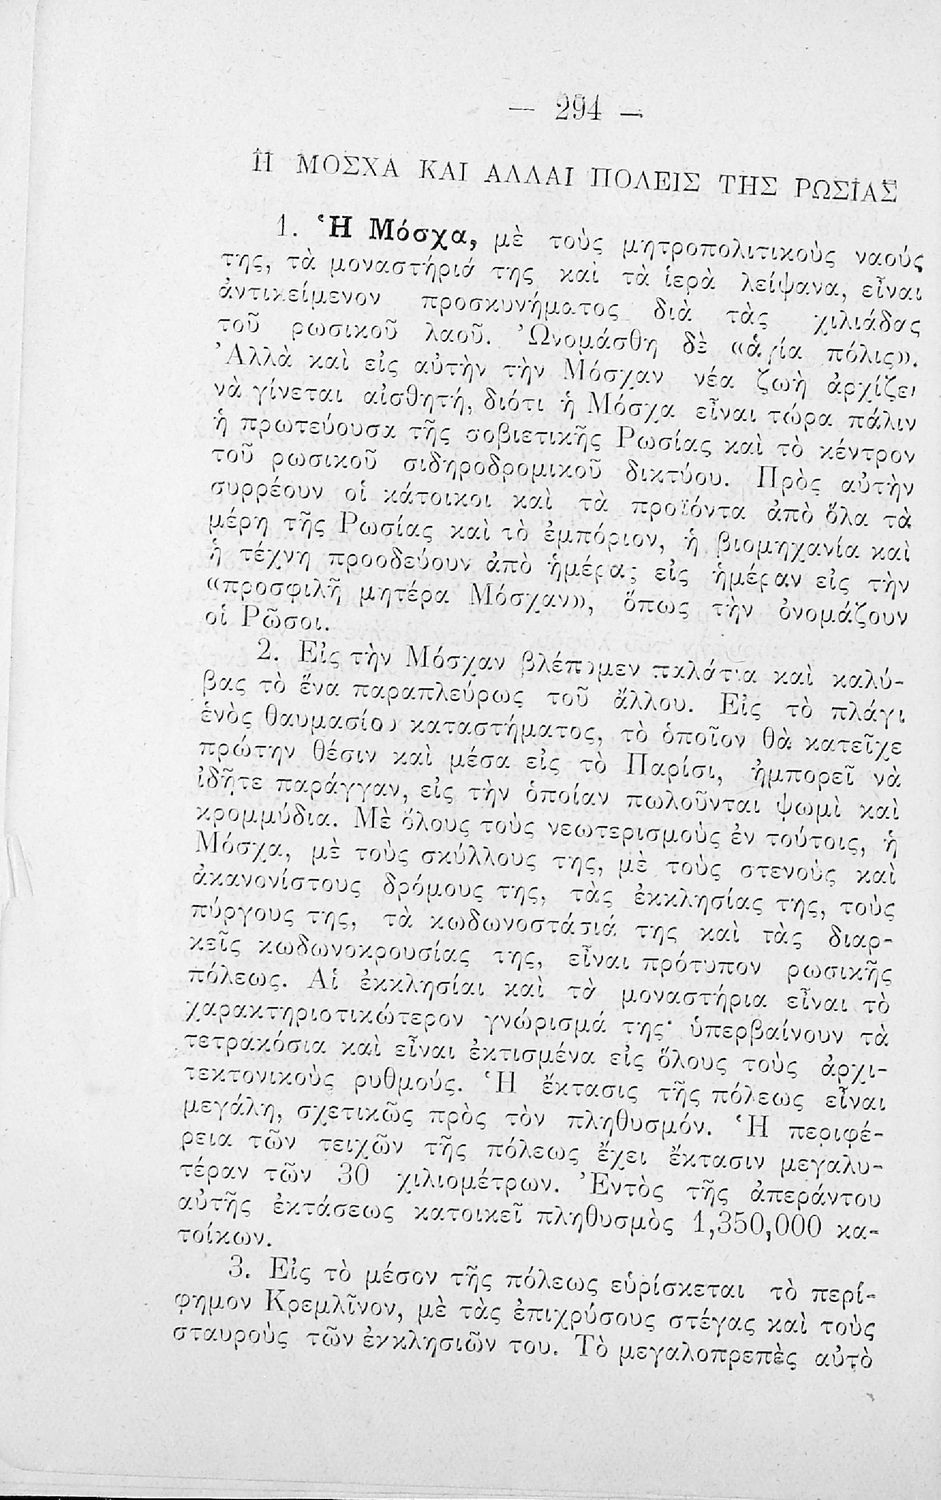 — 294 —
Ἡ ΜΟΣΧΑ ΚΑΙ ΑΛΛΑΙ ΠΟΛΕΙΣ ΤΗΣ ΡΩΣΙΑΣ
1. Ἡ Μόσχα, μὲ τοὺς μητροπολιτικοὺς ναούς
της, τὰ μοναστήριά της καὶ τὰ ἱερὰ λείψανα, εἶναι
ἀντικείμενον προσκυνήματος διὰ τὰς χιλιάδας
τοῦ ρωσικοῦ λαοῦ. Ὠνομάσθη δὲ «ἁγία πόλις».
Ἀλλὰ καὶ εἰς αὐτὴν τὴν Μόσχαν νέα ζωὴ ἀρχίζει
νὰ γίνεται αἰσθητή, διότι ἡ Μόσχα εἶναι τώρα πάλιν
ἡ πρωτεύουσα τῆς σοβιετικῆς Ρωσίας καὶ τὸ κέντρον
τοῦ ρωσικοῦ σιδηροδρομικοῦ δικτύου. Πρὸς αὐτὴν
συρρέουν οἱ κάτοικοι καὶ τὰ προϊόντα ἀπὸ ὅλα τὰ
μέρη τῆς Ρωσίας καὶ τὸ ἐμπόριον, ἡ βιομηχανία καὶ
ἡ τέχνη προοδεύουν ἀπὸ ἡμέρας εἰς ἡμέραν εἰς τὴν
«προσφιλῆ μητέρα Μόσχαν», ὅπως τὴν ὀνομάζουν
οἱ Ρῶσοι.
2. Εἰς τὴν Μόσχαν βλέπομεν παλάτια καὶ καλύ-
βας τὸ ἕνα παραπλεύρως τοῦ ἄλλου. Εἰς τὸ πλάγι
ἑνὸς θαυμασίου καταστήματος, τὸ ὁποῖον θὰ κατεῖχε
πρώτην θέσιν καὶ μέσα εἰς τὸ Παρίσι, ἠμπορεῖ νὰ
ἰδῆτε παράγγαν, εἰς τὴν ὁποίαν πωλοῦνται ψωμὶ καὶ
κρομμύδια. Μὲ ὅλους τοὺς νεωτερισμοὺς ἐν τούτοις, ἡ
Μόσχα, μὲ τοὺς σκύλλους της, μὲ τοὺς στενοὺς καὶ
ἀκανονίστους δρόμους της, τὰς ἐκκλησίας της, τοὺς
πύργους της, τὰ κωδωνοστάσιά της καὶ τὰς διαρ-
κεῖς κωδωνοκρουσίας της, εἶναι πρότυπον ρωσικῆς
πόλεως. Αἱ ἐκκλησίαι καὶ τὰ μοναστήρια εἶναι τὸ
χαρακτηριστικώτερον γνώρισμά της· ὑπερβαίνουν τὰ
τετρακόσια καὶ εἶναι ἐκτισμένα εἰς ὅλους τοὺς ἀρχι-
τεκτονικοὺς ρυθμούς. Ἡ ἔκτασις τῆς πόλεως εἶναι
μεγάλη, σχετικῶς πρὸς τὸν πληθυσμόν. Ἡ περιφέ-
ρεια τῶν τειχῶν τῆς πόλεως ἔχει ἔκτασιν μεγαλυ-
τέραν τῶν 30 χιλιομέτρων. Ἐντὸς τῆς ἀπεράντου
αὐτῆς ἐκτάσεως κατοικεῖ πληθυσμὸς 1,350,000 κα-
τοίκων.
3. Εἰς τὸ μέσον τῆς πόλεως εὑρίσκεται τὸ περί-
φημον Κρεμλῖνον, μὲ τὰς ἐπιχρύσους στέγας καὶ τοὺς
σταυροὺς τῶν ἐκκλησιῶν του. Τὸ μεγαλοπρεπὲς αὐτὸ